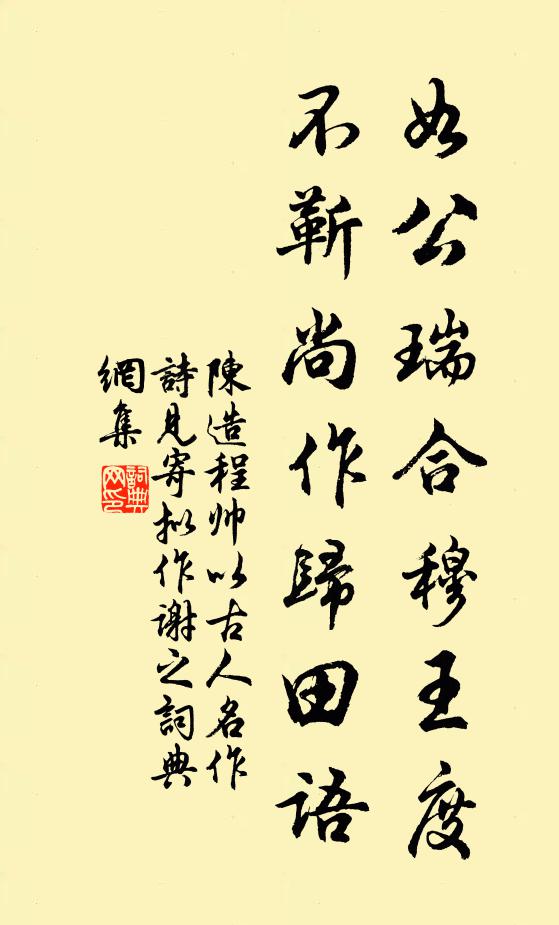 如公瑞合穆王度
不靳尚作歸田語
陳造程帅以古人名作
詩見寄拟作謝之詞典
網集
詞典網印